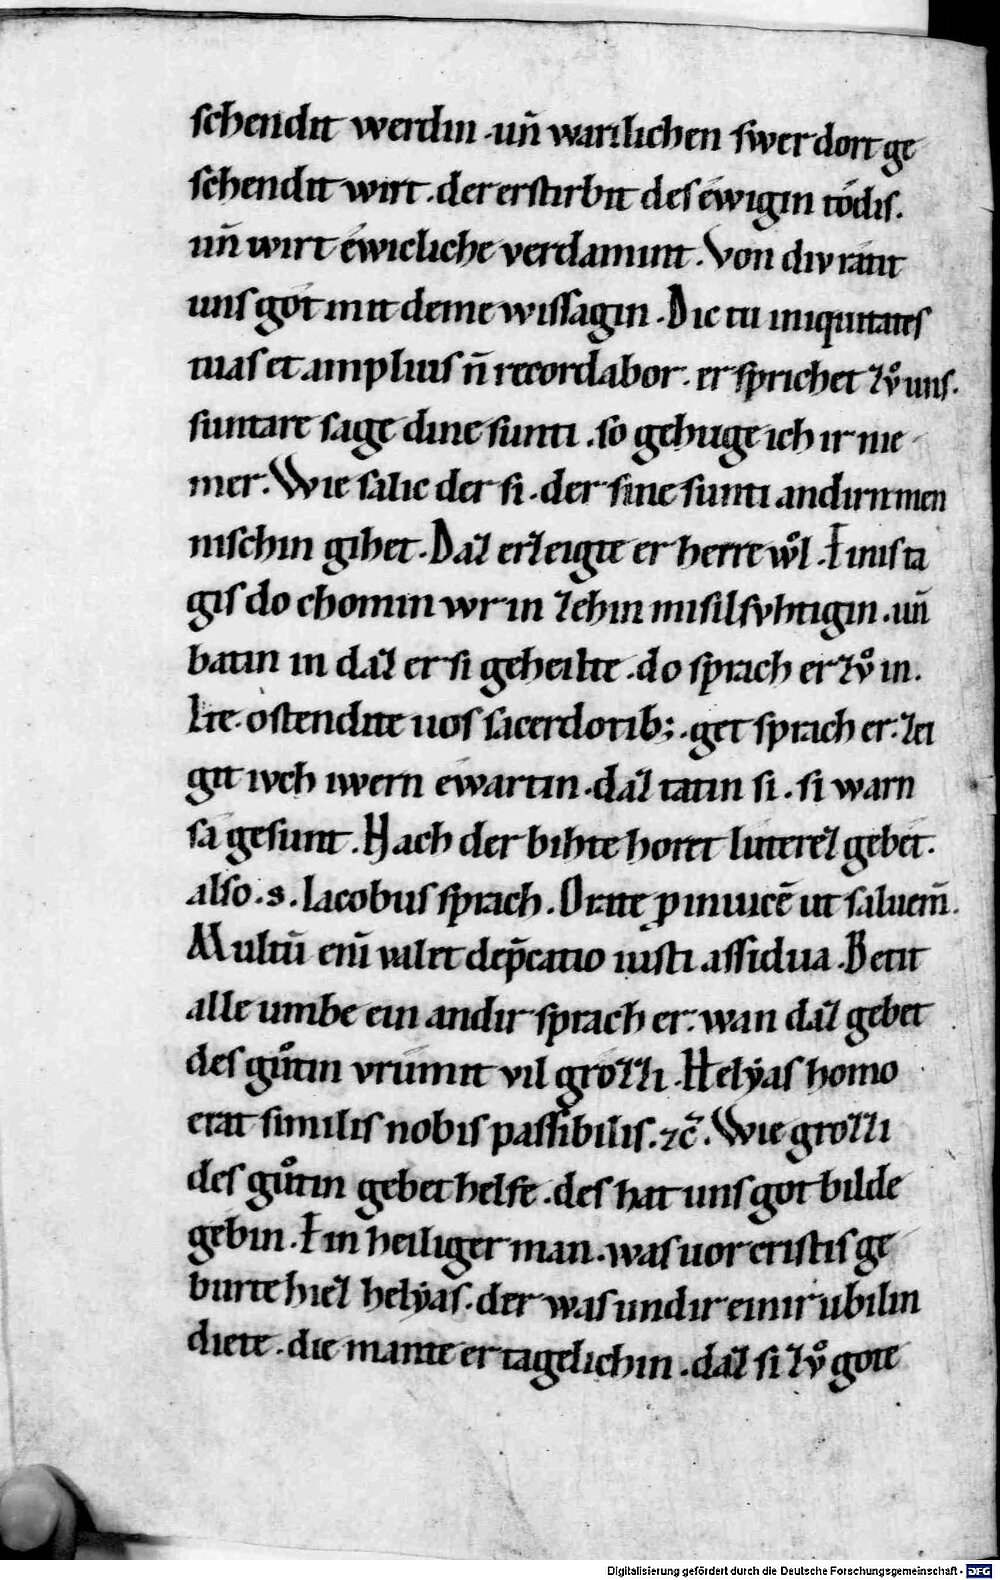 schendit werdin ·un̄ warilichen swer dort ge
schendit wirt ·der erstirbit des éwigin tódis.
un̄ wirt éwicliche verdamint· Von div rátit
uns got mit deme wissagin ·Dic tu iniquitates
tuas et amplius n̄ recordabor· er sprichet zv̊ uns·
suntare sage dine sunti ·so gehuge ich ir nie
mer· Wie salic der si ·der sine sunti andirn men
nischin gihet ·Daz erzeigte er herre wol ·Einis ta
gis do chomin wr in zehin misilsvhtigin ·un̄
batin in daz er si geheilte ·do sprach er zv̊ in.
Ite· ostendite uos sacerdotib; ·get sprach er· zei
git ivch iwern éwartin ·daz tatin si · si warn
sa gesunt ·Nach der bihte horet luterez gebet·
also ·s· Iacobus sprach ·Orate p̱ inuicē ut saluem̄.
Multū eni̅ valet dep̄catio iusti assidua ·Betit
alle umbe ein andir sprach er· wan daz gebet
des gůtin vrumit vil grozzi ·Helẏas homo
erat similis nobis passibilis· ⁊c̄· Wie grozzi
des gůtin gebet helfe ·des hat uns got bilde
gebin ·Ein heiliger man ·was uor cristis ge
burte hiez helẏas· der was undir einir ubilin
diete ·die mante er tagelichin ·daz si zv̊ gote
Digitalisierung gefördert durch die Deutsche Forschungsgemeinschaft - DFG